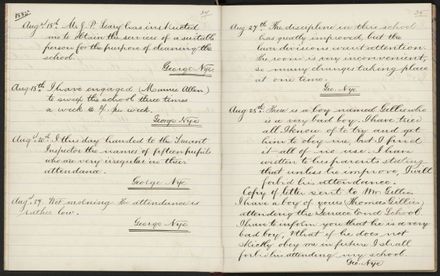 34
Aug. 15th. Mr. J. P. Leary has instructed
me to obtain the services of a suitable
person for the purpose of cleaning the
school.
George Nye
Aug 18th I have engaged (Mannie Allen)
to sweep the school three times
a week @ per week.
George Nye
Aug. 20th I this day handed to the Truant
Inspector the names of fifteen pupils
who are very irregular in their
attendance.
George Nye
Aug. 29. Wet morning the attendance is
rather low.
George Nye
35
Aug 27th The discipline in this school
has greatly improved, but the
two divisions want attention.
The room is very inconvenient,
so many changes taking place
at one time.
Geo. Nye
Aug 28th. There is a boy named Gillies who
is a very bad boy. I have tried
all I know of to try and get
him to obey me, but I find
it all of no use. I have
written to his parents stating
that unless he improve, I will
forbid his attendance.
Copy of letter sent to Mr Gillies
I have a boy of yours (Thomas Gillies)
attending the Terrace End School
I have to inform you that he is a very
bad boy, & that if he does not
strictly obey me in future I shall
forbid his attending my school.
Geo. Nye